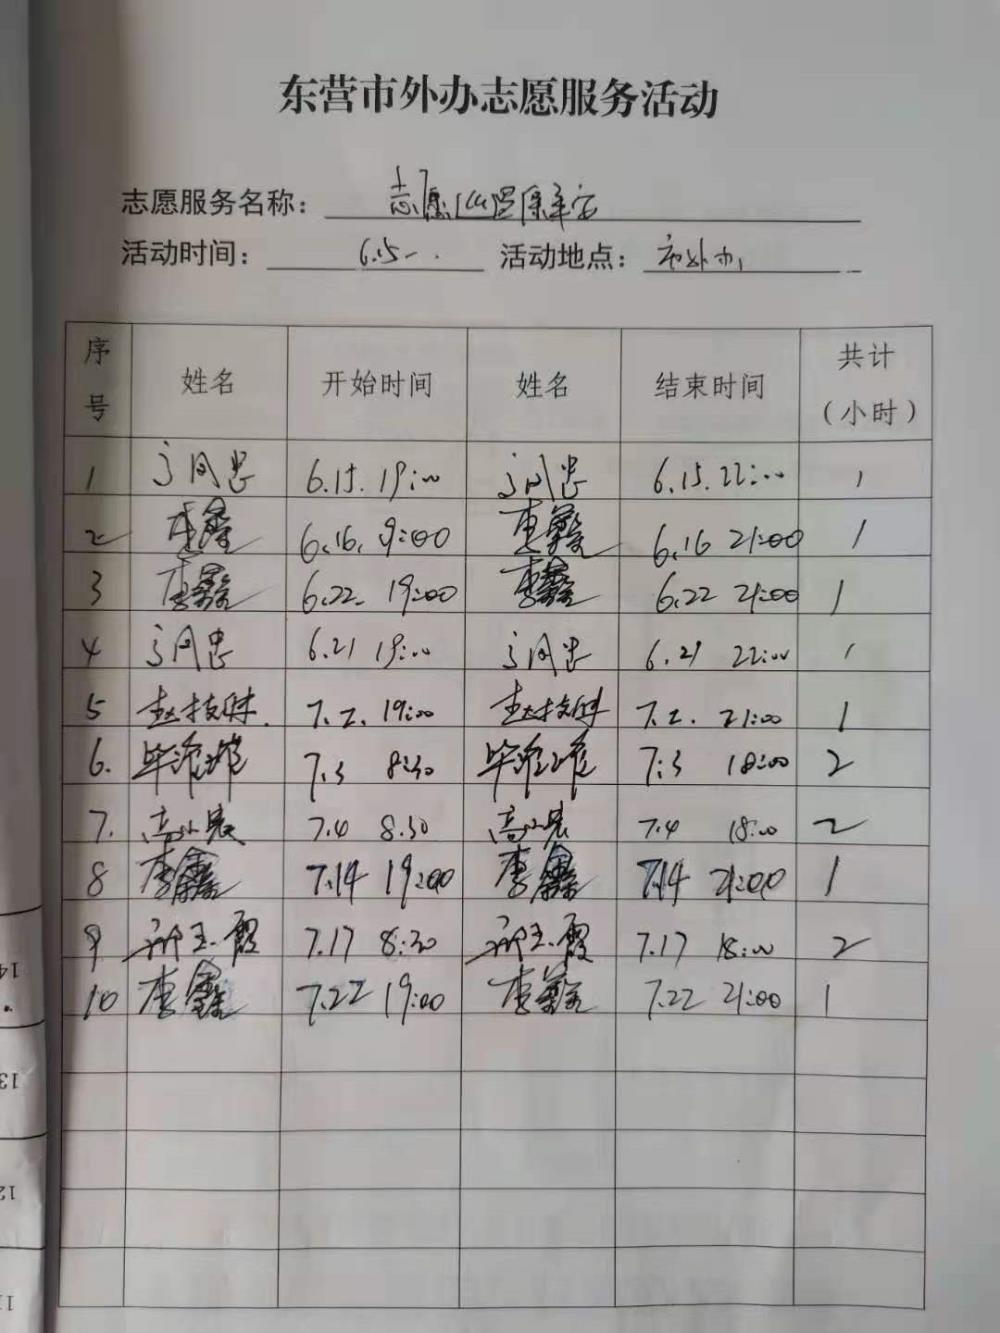 东营市外办志愿服务活动
志愿服务名称：志愿
活动时间：6.15 活动地点：市外办
序号 姓名 开始时间 姓名 结束时间 共计（小时）
1 6.15. 19:00 6.15. 22:00 1
2 李鑫 6.16. 19:00 李鑫 6.16 21:00 1
3 李鑫 6.22. 19:00 李鑫 6.22 21:00 1
4 6.21 19:00 6.21 22:00 1
5 7.2. 19:00 7.2. 21:00 1
6. 7.3 8:30 7.3 18:00 2
7. 高 7.4 8.30 高 7.4 18:00 2
8 李鑫 7.14 19:00 李鑫 7.14 21:00 1
9 玉霞 7.17 8:30 玉霞 7.17 18:00 2
10 李鑫 7.22 19:00 李鑫 7.22 21:00 1
14
13
12
11